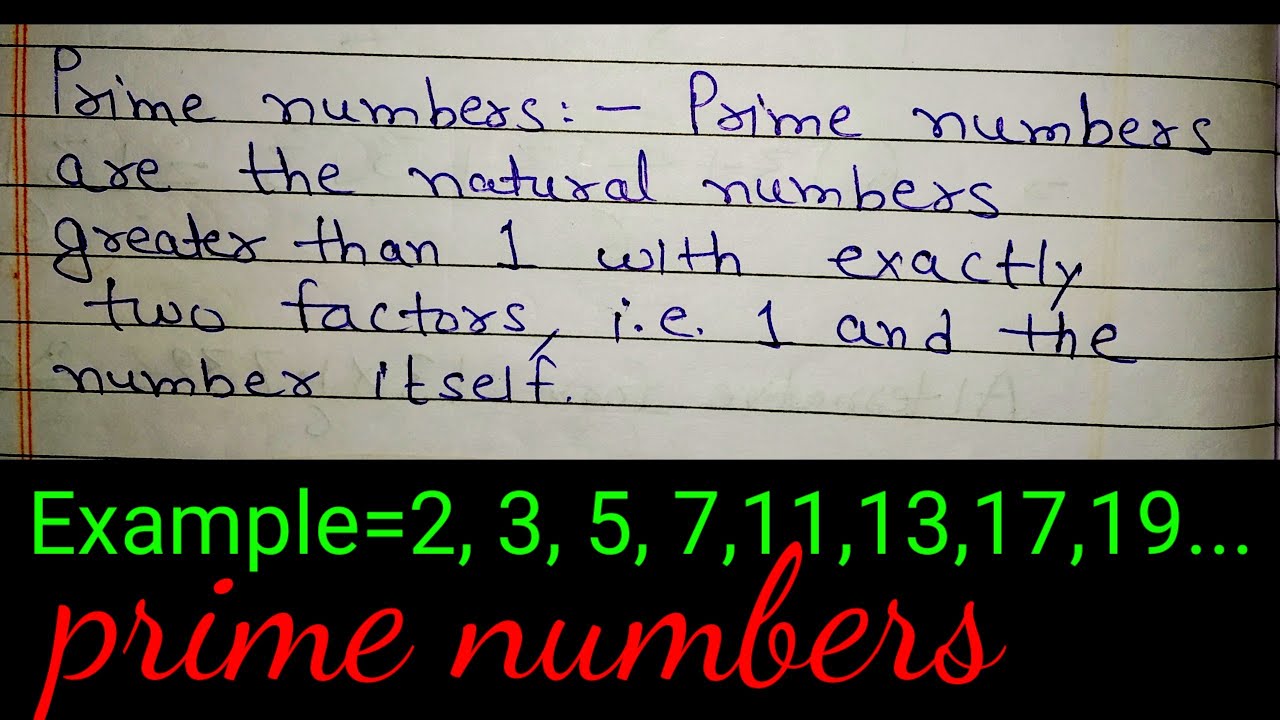 Prime numbers:- Prime numbers
are the natural numbers
greater than 1 with exactly
two factors, i.e. 1 and the
number itself.
Example=2, 3, 5, 7,11,13,17,19...
prime numbers